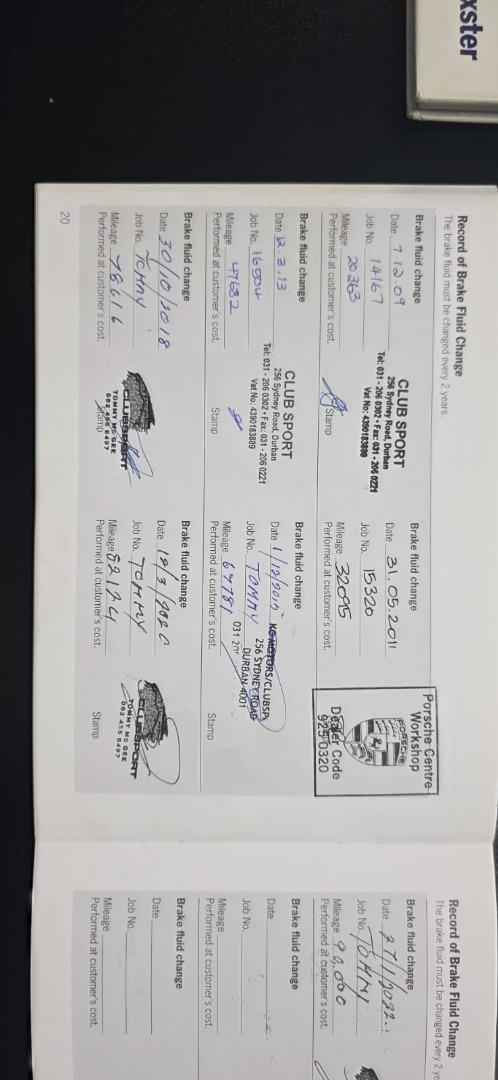 xster
Record of Brake Fluid Change
The brake fluid must be changed every 2 years.
Brake fluid change
Date 7.12.09
Job No. 14167
Mileage 20263
Performed at customer's cost.
CLUB SPORT
256 Sydney Road, Durban
Tel: 031 - 206 0302 • Fax: 031 - 206 0221
Vat No: 4390183889
Stamp
Brake fluid change
Date 31.05.2011
Job No. 15320
Mileage 32095
Performed at customer's cost.
Porsche Centre
Workshop
PORSCHE
Dealer Code
925 0320
Brake fluid change
Date 12.3.13
Job No. 16504
Mileage 47682
Performed at customer's cost.
CLUB SPORT
256 Sydney Road, Durban
Tel: 031 - 206 0302 • Fax: 031 - 206 0221
Vat No: 4390183889
Stamp
Brake fluid change
Date 1/12/201
Job No. TOMMY
Mileage 64781
Performed at customer's cost.
MOTORS/CLUBSP
256 SYDNEY ROAD
DURBAN 4001
031 20
Stamp
Brake fluid change
Date 30/10/2018
Job No. TOMMY
Mileage 78616
Performed at customer's cost.
CLUBSPORT
TOMMY MC GEE
082 455 8497
Stamp
Brake fluid change
Date 12/3/2020
Job No. TOMMY
Mileage 82124
Performed at customer's cost.
CLUBSPORT
TOMMY MC GEE
082 455 8497
Stamp
20
Record of Brake Fluid Change
The brake fluid must be changed every 2 ye
Brake fluid change
Date 27/1/2022
Job No. TOMMY
Mileage 90,000
Performed at customer's cost.
Brake fluid change
Date
Job No.
Mileage
Performed at customer's cost.
Brake fluid change
Date
Job No.
Mileage
Performed at customer's cost.